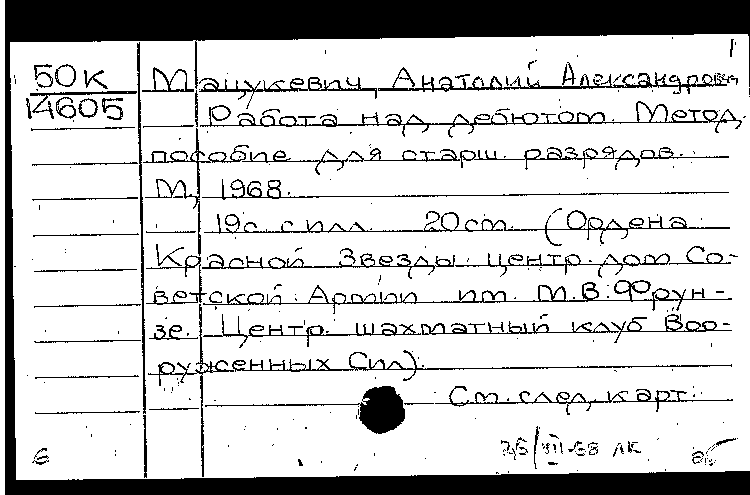 1
50К Мацукевич, Анатолий Александрович
14605 Работа над дебютом. Метод.
пособие для старш. разрядов.
М., 1968.
19с. с илл. 20см. (Ордена
Красной Звезды центр. дом Со-
ветской Армии им. М.В. Фрун-
зе. Центр. шахматный клуб Воо-
руженных Сил).
См. след. карт.
6 VIII-68 ЛК